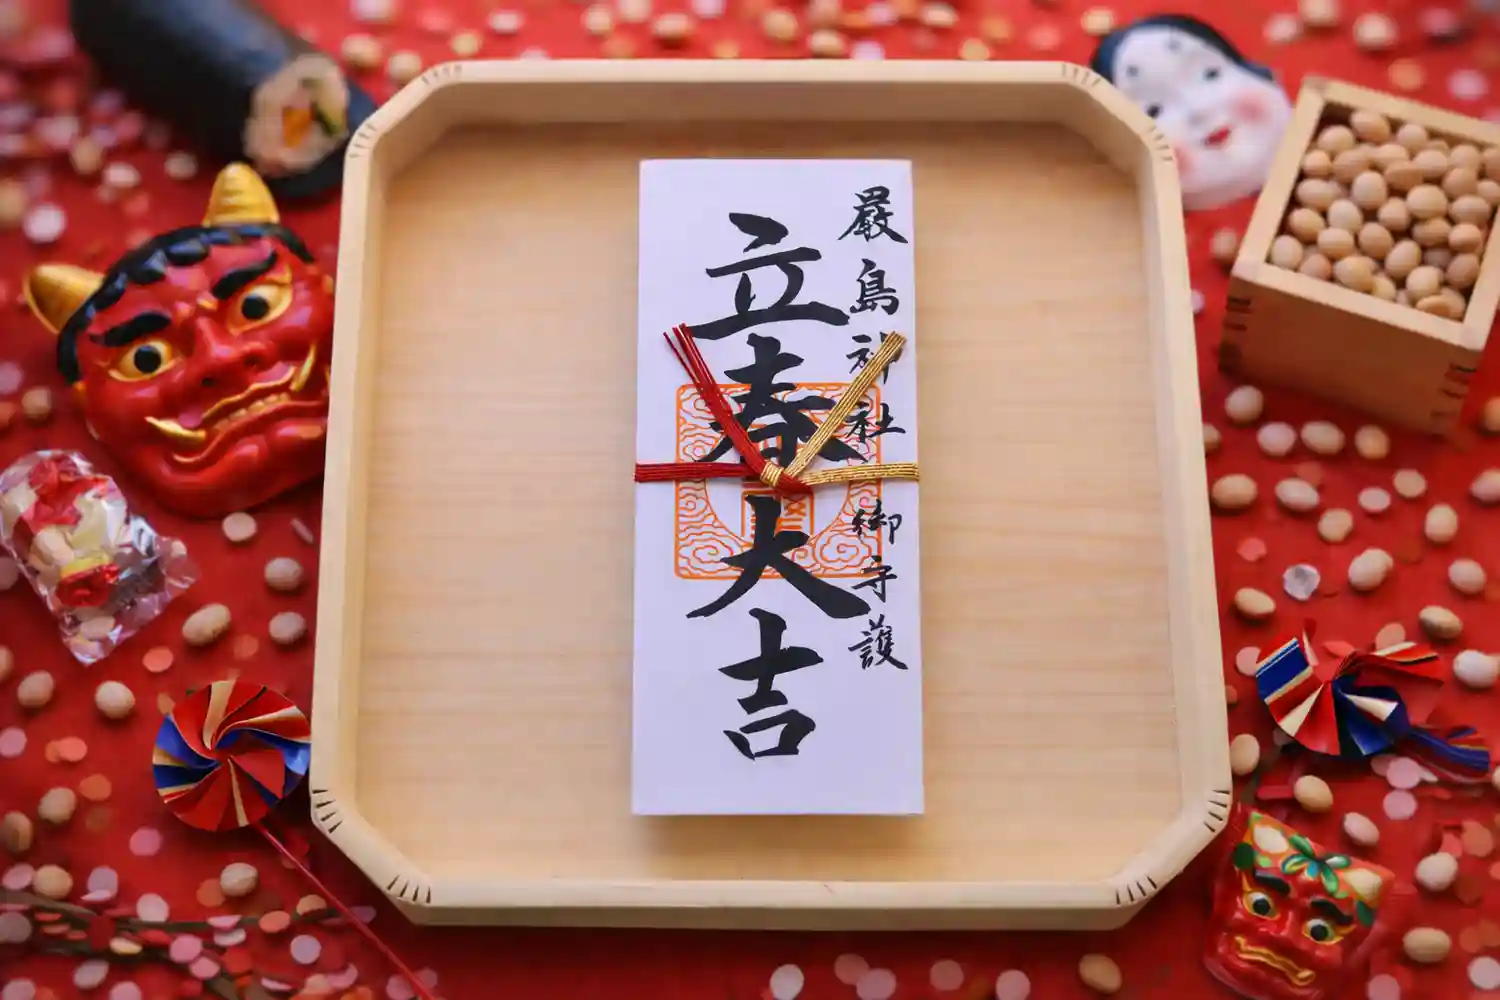 嚴島神社御守護
立春大吉